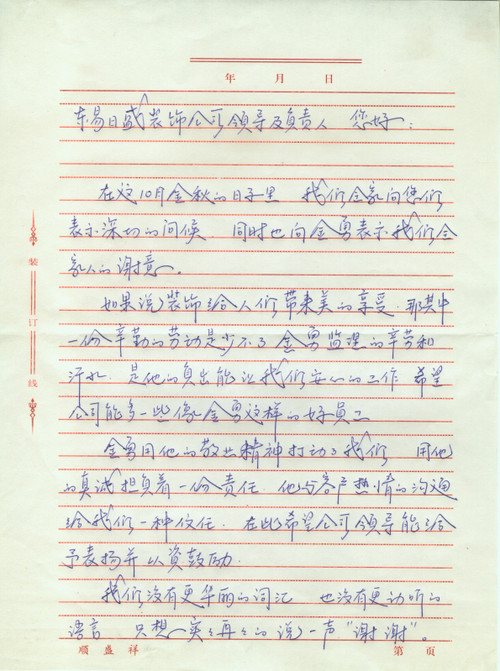 年 月 日
东易日盛装饰公司领导及负责人 您好:
在这10月金秋的日子里 我们全家向您们
表示深切的问候 同时也向金勇表示我们全
家人的谢意。
如果说装饰给人们带来美的享受.那其中
一份辛勤的劳动是少不了金勇监理的辛劳和
汗水.是他的负出能让我们安心的工作 希望
公司能多一些像金勇这样的好员工
金勇用他的敬业精神打动了我们 用他
的真诚担负着一份责任.他与客户热情的沟通
给我们一种信任.在此希望公司领导能给
予表扬并以资鼓励.
我们没有更华丽的词汇 也没有更动听的
语言 只想实实再再的说一声"谢谢"。
装订线
顺盛祥 第 页